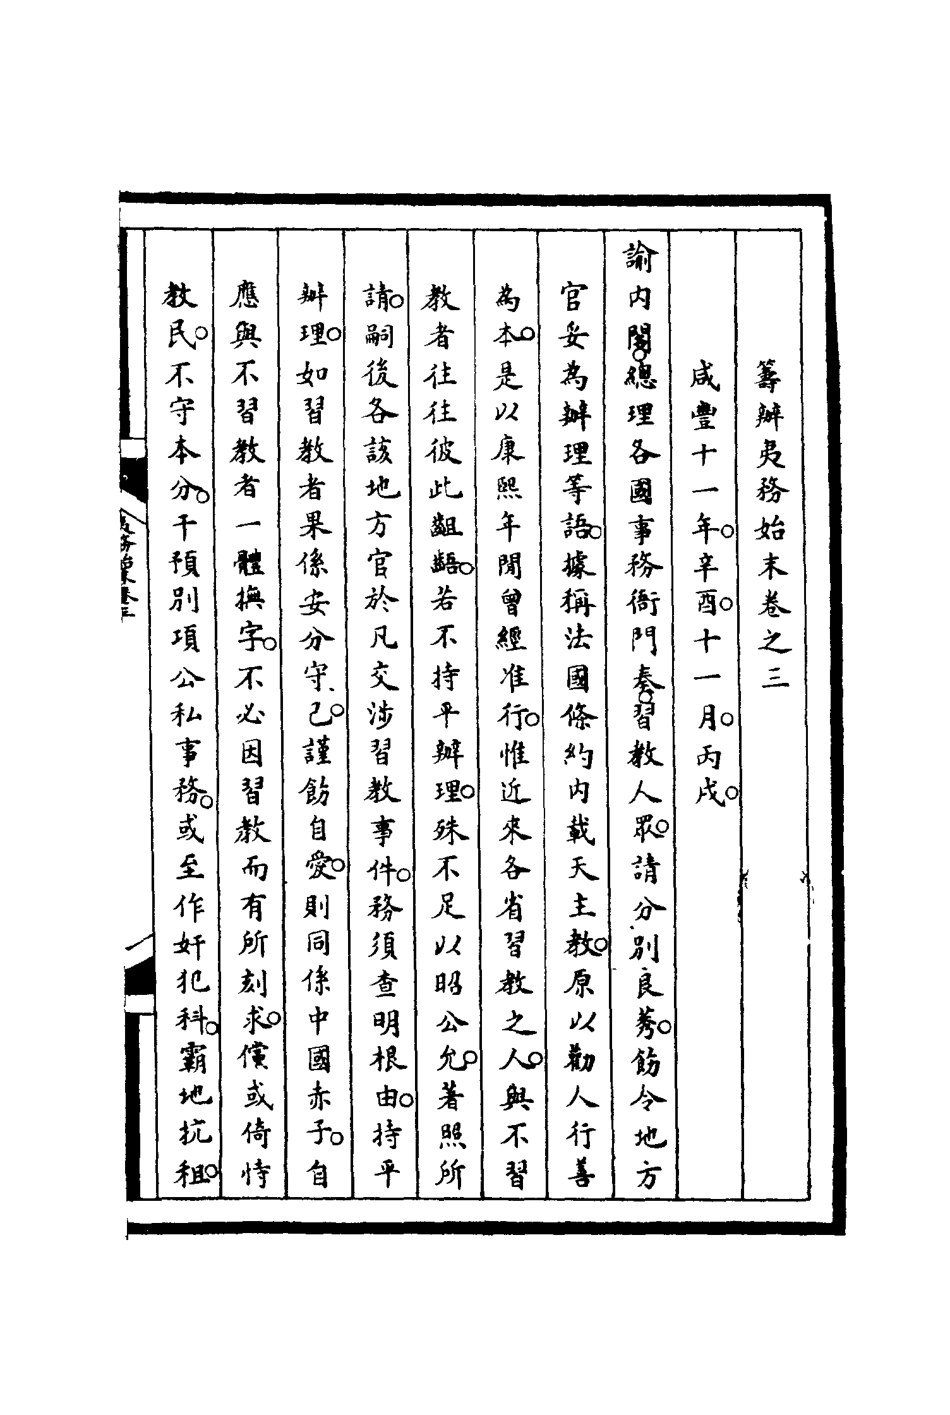 籌辦夷務始末卷之三
咸豐十一年。辛酉。十一月。丙戌。
諭內閣。總理各國事務衙門奏。習教人眾。請分別良莠。飭令地方
官妥為辦理等語。據稱法國條約內載天主教。原以勸人行善
為本。是以康熙年間曾經准行。惟近來各省習教之人。與不習
教者往往彼此齟齬。若不持平辦理。殊不足以昭公允。著照所
請。嗣後各該地方官於凡交涉習教事件。務須查明根由。持平
辦理。如習教者果係安分守己。謹飭自愛。則同係中國赤子。自
應與不習教者一體撫字。不必因習教而有所刻求。儻或倚恃
教民。不守本分。干預別項公私事務。或至作奸犯科。霸地抗租。